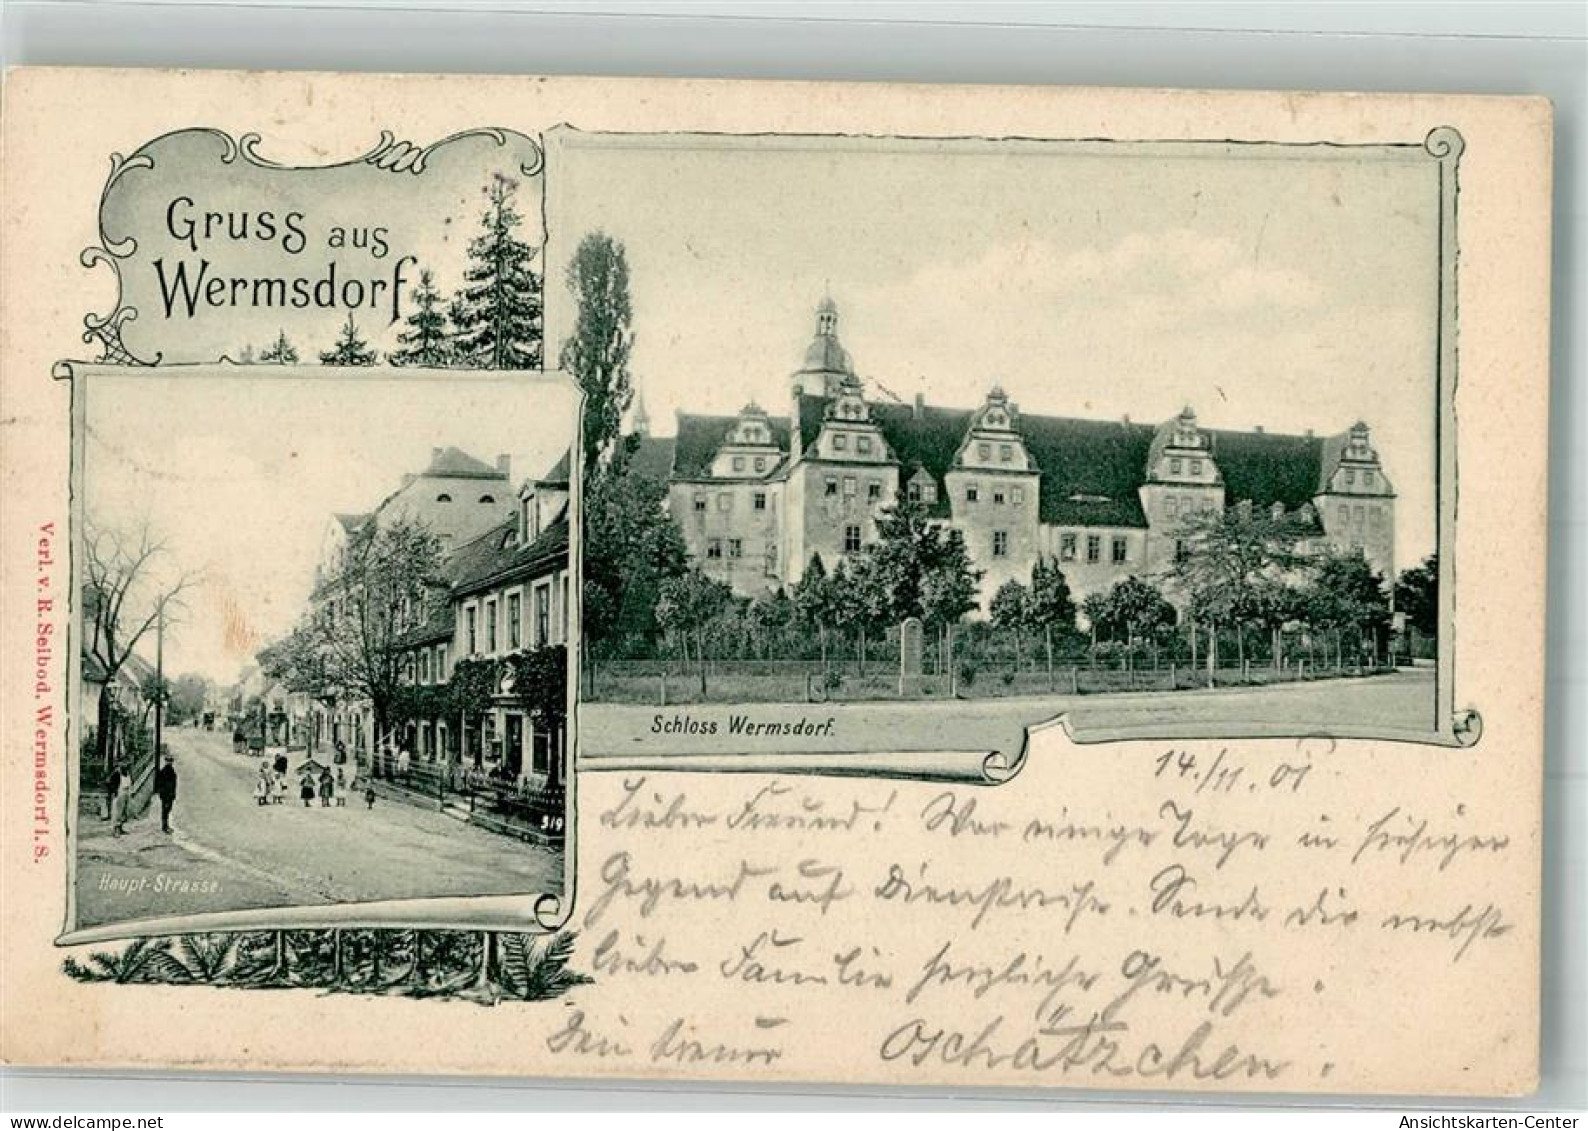 Gruss aus
Wermsdorf
Schloss Wermsdorf.
Haupt-Strasse.
519
Verl. v. R. Seibod, Wermsdorf i. S.
14./11.01
Lieber Freund! War einige Tage in hiesiger
Gegend auf Dienstreise. Sende Dir nebst
lieber Familie herzliche Grüsse.
Dein treuer Oschätzchen.
Ansichtskarten-Center